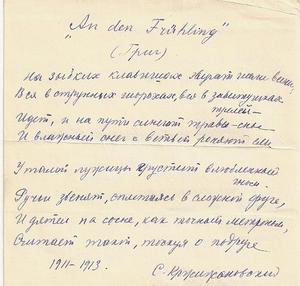 "An den Frühling"
(Григ)
На зыбких клавишах играет
Вся в струнных шорохах, вся в завитушках
трелей—
Идет, и на пути синеют травы-сны
И влажный снег с ветвей роняют ели
У талой лужицы грустит влюбленный
Ручьи звенят, сплетаясь в снежной друзе,
И дятел на сосне, как точный метроном,
Считает такт, тоскуя о подруге
1911-1913.
С. Кржижановский